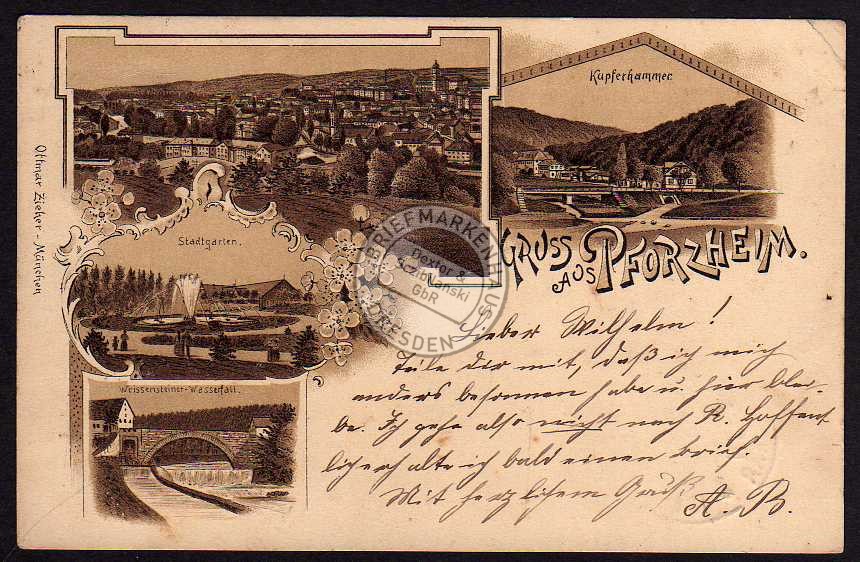 Kupferhammer.
Stadtgarten.
Weissensteiner-Wasserfall.
Ottmar Zieher - München
GRUSS AUS PFORZHEIM.
BRIEFMARKENHAUS
Dexter &
GbR
DRESDEN
Lieber Wilhelm!
Teile dir mit, daß ich mich
anders besonnen habe u. hier blei-
be. Ich gehe also nicht nach R. Hoffent
lich erhalte ich bald einen Brief.
Mit herzlichem Gruß
A. B.